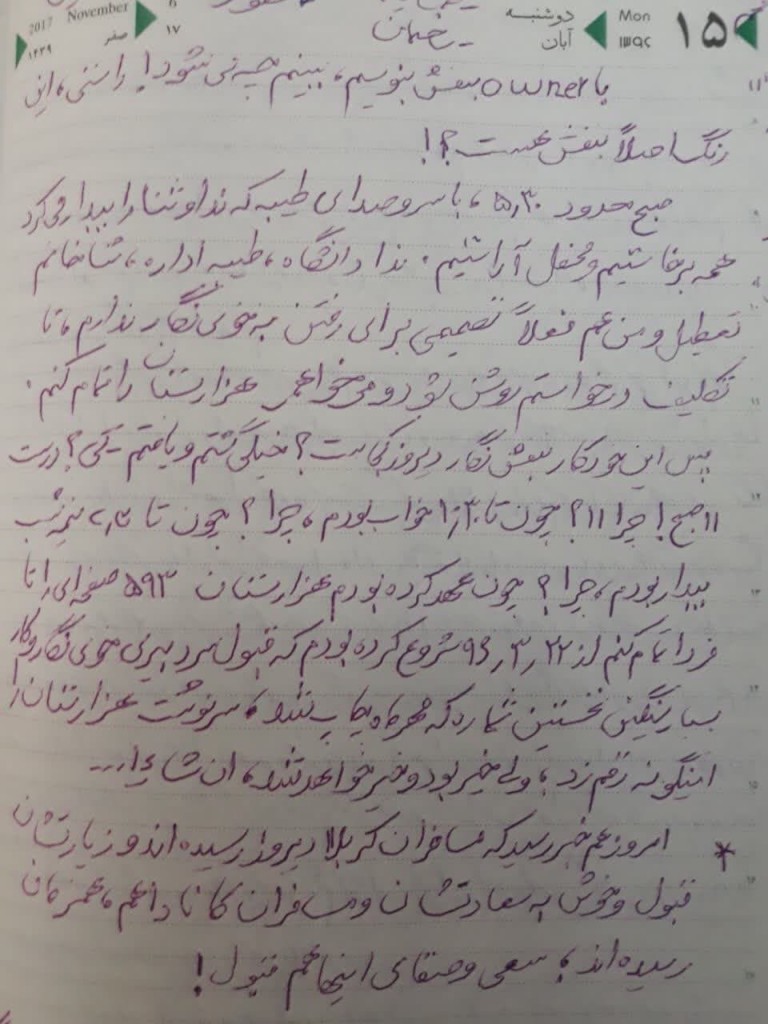 2017 November 6
۱۴۳۹ صفر ۱۷
دوشنبه
آبان
Mon
۱۳۹۶
۱۵
با owner بنفش بنویسیم، ببینم چه می‌شود! راستی، این
رنگ اصلاً بنفش هست؟!
صبح حدود ۵٫۳۰، با سر و صدای طیبه که ندا و ثنا را بیدار می‌کرد
همه برخاستیم و محفل آراستیم. ندا دانشگاه، طیبه اداره، ثنا خانم
تعطیل و من هم فعلاً تصمیمی برای رفتن به خوی نگار ندارم، تا
تکلیف درخواستم روشن شود و می‌خواهم هزارستان را تمام کنم.
پس این خودکار بنفش نگار دیروز کجاست؟ خیلی گشتم و یافتم - کی؟ درست
۱۱ صبح! چرا ۱۱؟ چون تا ۱۰٫۳۰ خواب بودم، چرا؟ چون تا ۲٫۳۰ نیمه شب
بیدار بودم، چرا؟ چون عهد کرده بودم هزارستان ۵۹۳ صفحه‌ای را تا
فردا تمام کنم از ۹۶٫۳٫۲۲ شروع کرده بودم که قبول سردبیری خوی نگار و کار
بسیار سنگین نخستین شماره که مهرماه چاپ شد، سرنوشت هزارستان را
اینگونه رقم زد، ولی خیر بود و خیر خواهد شد، ان شاءا...
* امروز هم خبر رسید که مسافران کربلا دیروز رسیده‌اند و زیارتشان
قبول و خوش به سعادتشان و مسافران کانادا هم، همزمان
رسیده‌اند، سعی و صفای اینها هم قبول!